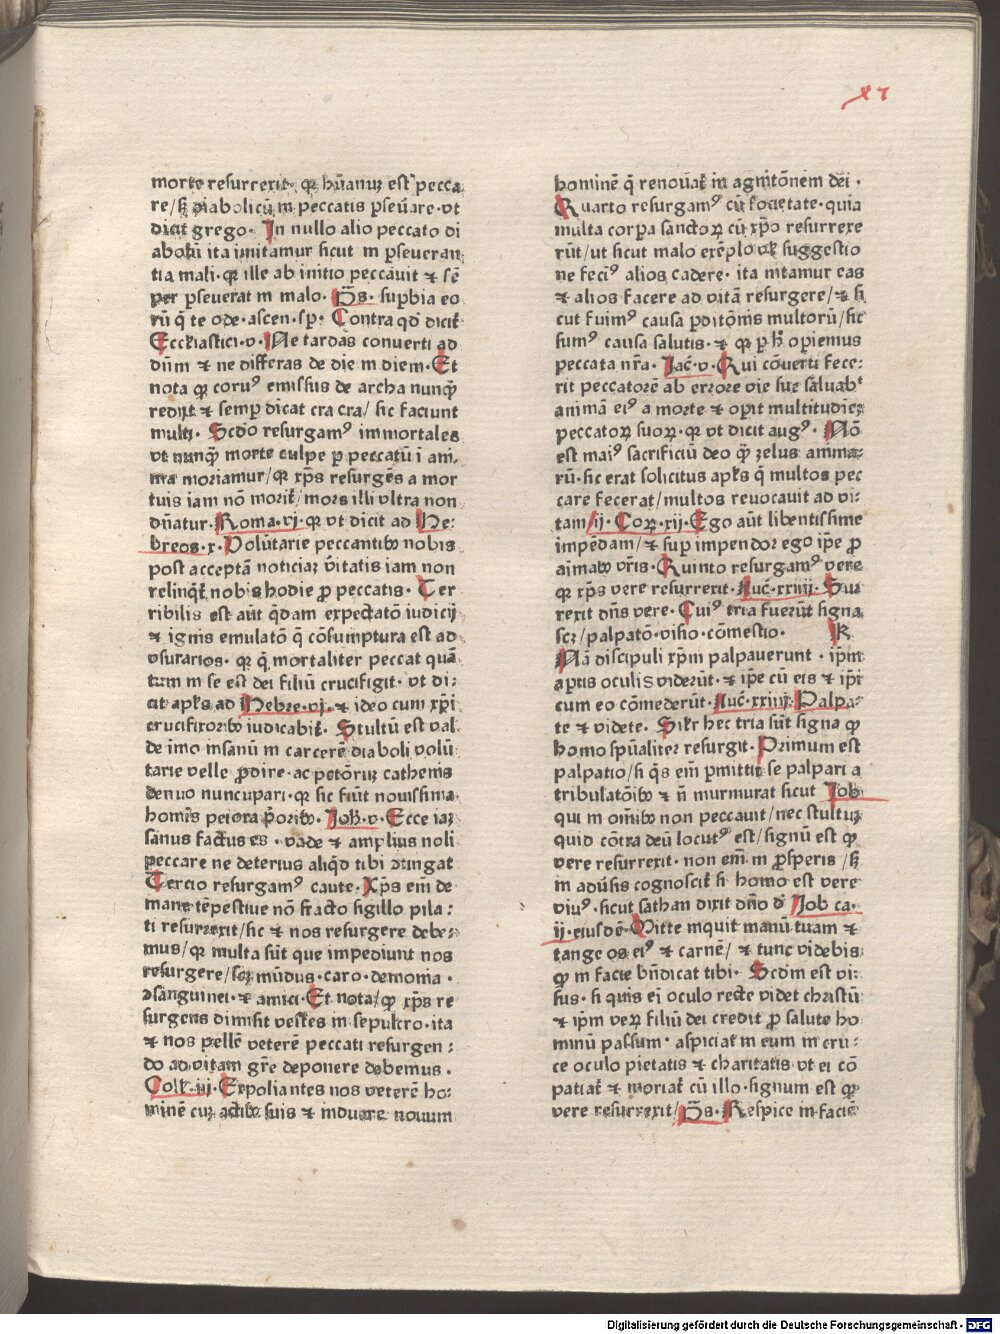 xv
morte resurrexit· qꝛ hūanuꝫ est pecca
re/sꝫ diabolicū in peccatis ꝑseūare·vt
dicit grego· In nullo alio peccato di
abolū ita imitamur sicut in ꝑseueran
tia mali·qꝛ ille ab initio peccauit ⁊ sē
per ꝑseuerat in malo· p̄s· suꝑbia eo
rū q̄ te ode·ascen·sꝑ· Contra qd̓ dicit̉
Ecclesiastici·v·Ne tardas conuerti ad
dūm ⁊ ne differas de die in diem·Et
nota qꝛ coruꝰ emissus de archa nunq̄
redijt ⁊ semꝑ dicat cra cra/ sic faciunt
multi· Scd̓o resurgamꝰ immortales
vt nunq̄ morte culpe ꝑ peccatū i ani-
ma moriamur/qꝛ xp̄s resurgēs a mor
tuis iam nō morit̉/mors illi vltra non
dn̄atur·Roma·vj·qꝛ vt dicit ad He:
breos·x·Volūtarie peccantibꝰ nobis
post acceptā noticiaꝫ v̄itatis iam non
relinq̄t̉ nobis hodie ꝓ peccatis· Ter
ribilis est aūt q̄dam expectatō iudicij
⁊ ignis emulatō q̄ cōsumptura est ad
vsurarios· qꝛ q̄ mortaliter peccat quā
tum in se est dei filiū crucifigit· vt di:
cit apl̄s ad Hebre·vj·⁊ ideo cum xp̄i
crucifixoribꝰ iudicabit̉· Stultū est val
de imo insanū in carcerē diaboli volū
tarie velle ꝓdire·ac petōriꝫ cathenis
denuo nuncupari·qꝛ sic fiūt nouissima
homīs peiora p̄oribꝰ· Joh̄·v·Ecce iaꝫ
sanus factus es· vade ⁊ amplius noli
peccare ne deterius aliqd̓ tibi ꝯtingat
Tercio resurgamꝰ caute· Xp̄s em̄ de
mane tēpestiue nō fracto sigillo pila:
ti resurrexit/sic ⁊ nos resurgere debe:
mus/qꝛ multa sūt que impediunt nos
resurgere/scꝫ mūdus·caro·demonia·
ꝯsanguinei·⁊ amici·Et nota/qꝛ xp̄s re
surgens dimisit vestes in sepulcro·ita
⁊ nos pellē veterē peccati resurgen:
do ad vitam gr̄e deponere debemus·
Colꝰ·iij·Expoliantes nos veterē ho:
minē cuꝫ actibꝰ suis ⁊ induare nouum
hominē q̄ renouat̉ in agnitōnem dei·
Quarto resurgamꝰ cū societate·quia
multa corpa sanctoꝝ cū xp̄o resurrexe
rūt/ut sicut malo exēplo vel suggestio
ne fecīꝰ alios cadere· ita nitamur eas
⁊ alios facere ad vitā resurgere/⁊ si
cut fuimꝰ causa ꝑditōnis multorū/sic
sumꝰ causa salutis· ⁊ qꝛ ꝑ h̄ oꝑiemus
peccata nr̄a· Jac̄·v·Qui cōuerti fece:
rit peccatorē ab errore vie sue saluabᵗ
animā eiꝰ a morte ⁊ oꝑit multitudieꝫ
peccatoꝝ suoꝝ·qꝛ vt dicit augꝰ· Nō
est maiꝰ sacrificiū deo q̄ zelus anima:
rū·sic erat solicitus apl̄s q̄ multos pec
care fecerat/multos reuocauit ad vi:
tam/ij·Coꝝ·xij·Ego aūt libentissime
impēdam/⁊ suꝑ impendor ego ip̄e ꝓ
aīmabꝰ vr̄is·Quinto resurgamꝰ vere
qꝛ xp̄s vere resurrexit·Luc̄·xxiiij·Sur
rexit dn̄s vere· Cuiꝰ tria fuerūt signa
scꝫ/palpatō·visio·cōmestio·
Nā discipuli xp̄m palpauerunt· ip̄m
aꝑtis oculis viderūt·⁊ ip̄e cū eis ⁊ ip̄i
cum eo cōmederūt·Luc̄·xxiiij·Palpa:
te ⁊ videte· Sil̓r hec tria sūt signa qꝛ
homo spūaliter resurgit·Primum est
palpatio/si q̄s em̄ ꝑmittit se palpari a
tribulatōibꝰ ⁊ n̄ murmurat sicut Job
qui in om̄ibꝰ non peccauit/nec stultuꝫ
quid cōtra deū locutꝰ est/signū est qꝛ
vere resurrexit· non em̄ in ꝓsperis/sꝫ
in aduersis cognoscit̉ si homo est vere
viuꝰ·sicut sathan dixit dn̄o d̄ Job ca·
ij·eiusdē·Mitte inquit manū tuam ⁊
tange os eiꝰ ⁊ carnē/ ⁊ tunc videbis
qꝛ in facie bn̄dicat tibi· Scd̓m est vi:
sus· si quis ei oculo recte videt christū
⁊ ip̄m veꝝ filiū dei credit ꝓ salute ho
minū passum· aspiciat̉ in eum in cru:
ce oculo pietatis ⁊ charitatis vt ei cō
patiat̉ ⁊ moriat̉ cū illo·signum est qꝛ
vere resurrexit/p̄s·Respice in faciē
Digitalisierung gefördert durch die Deutsche Forschungsgemeinschaft - DFG